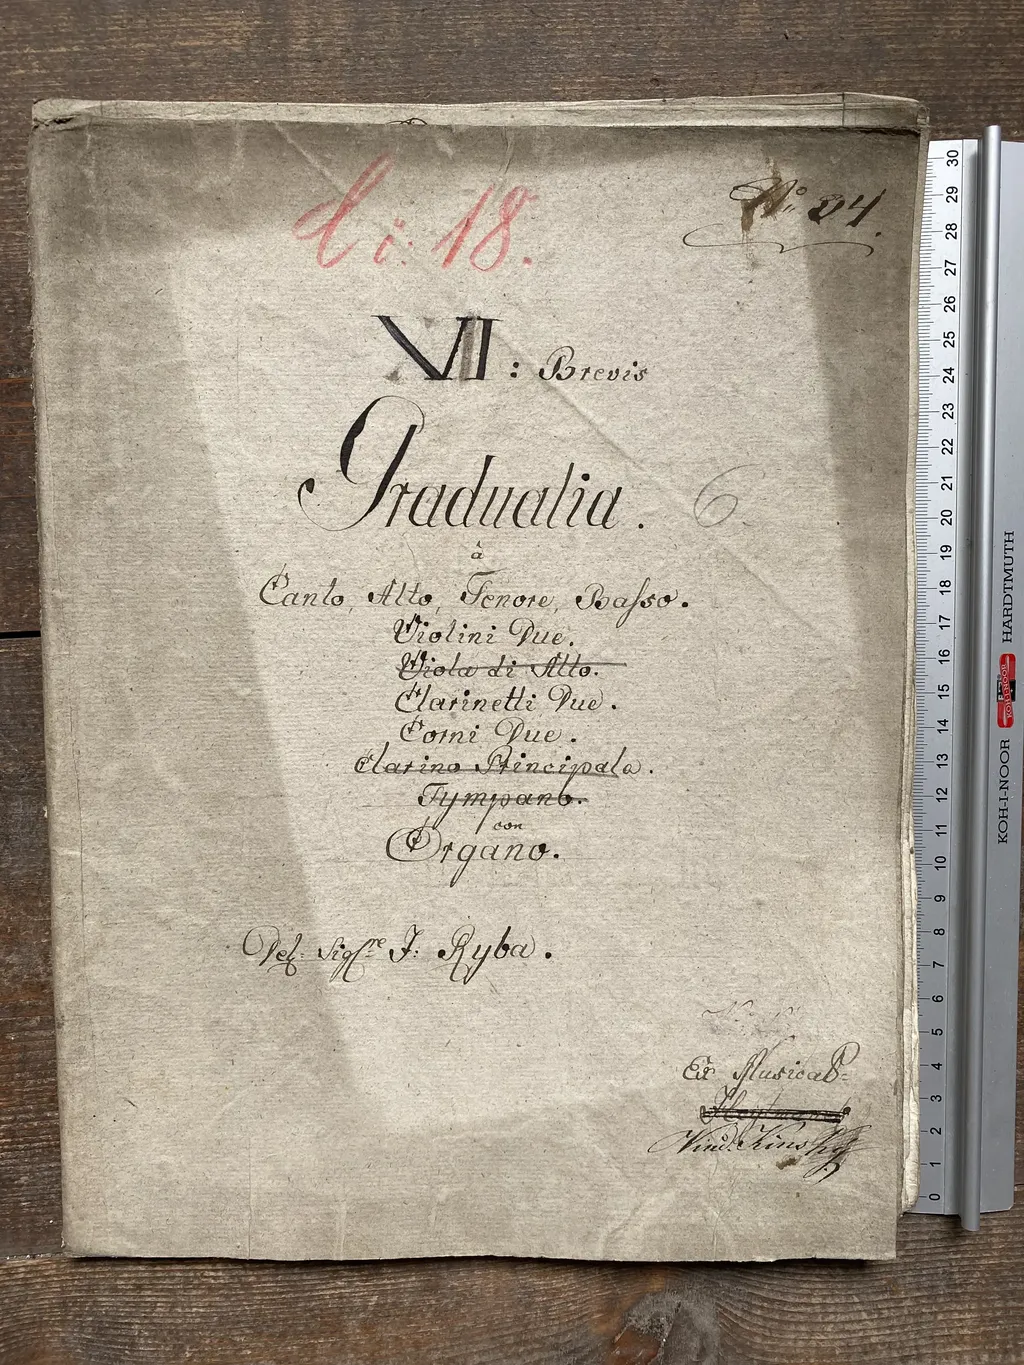 li: 18.
No: 24.
VI : Brevis
Gradualia. 6.
à
Canto, Alto, Tenore, Basso.
Violini Due.
Viola di Alto.
Clarinetti Due.
Corni Due.
Clarino Principale.
Tympano.
con
Organo.
Del Sigre J: Ryba.
Ex Musical:
Vind. Kinsky
30 29 28 27 26 25 24 23 22 21 20 19 18 17 16 15 14 13 12 11 10 9 8 7 6 5 4 3 2 1 0
KOH-I-NOOR HARDTMUTH